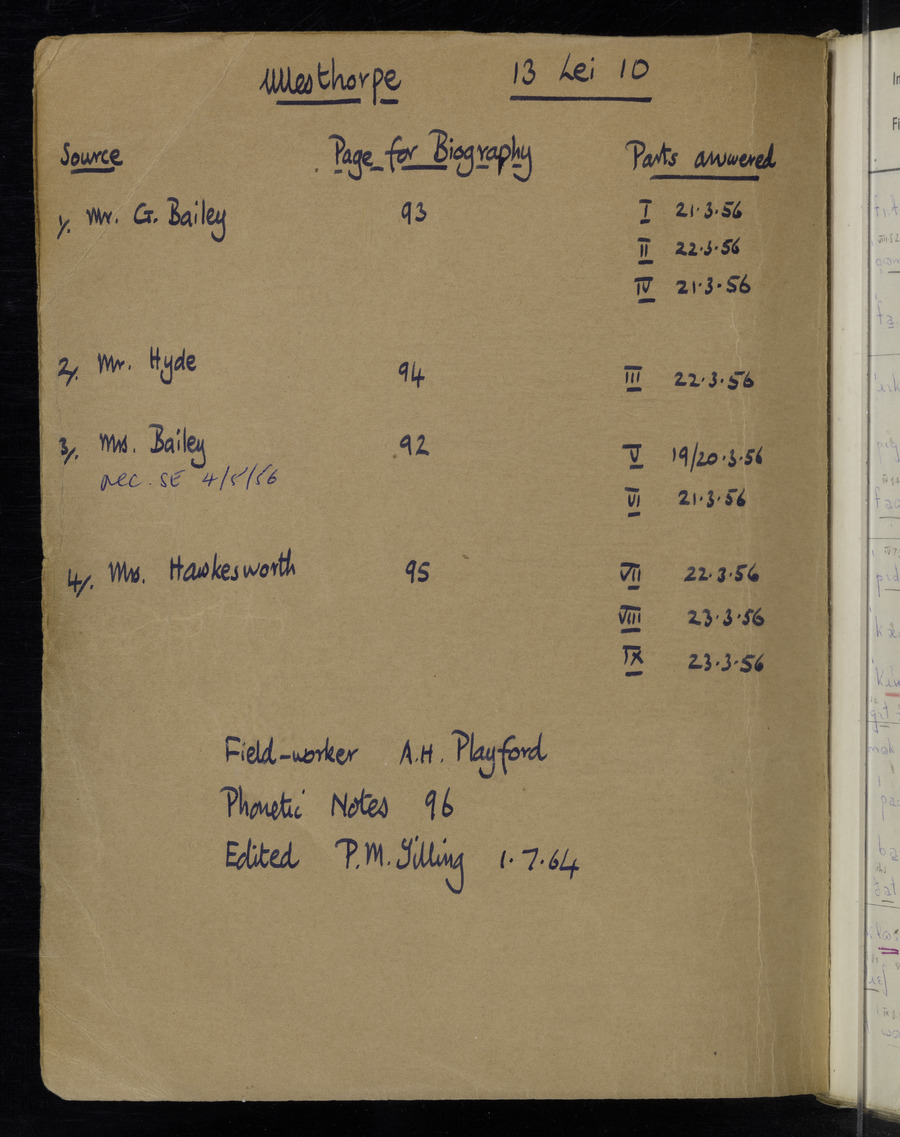 Ullesthorpe 13 Lei 10
Source Page for Biography Parts answered
1/. Mr. G. Bailey 93 I 21.3.56
II 22.3.56
IV 21.3.56
2/. Mr. Hyde 94 III 22.3.56
3/. Mrs. Bailey 92 V 19/20.3.56
rec. SE 4/5/56
VI 21.3.56
4/. Mrs. Hawkesworth 95 VII 22.3.56
VIII 23.3.56
IX 23.3.56
Field-worker A.H. Playford
Phonetic Notes 96
Edited P.M. Tilling 1.7.64